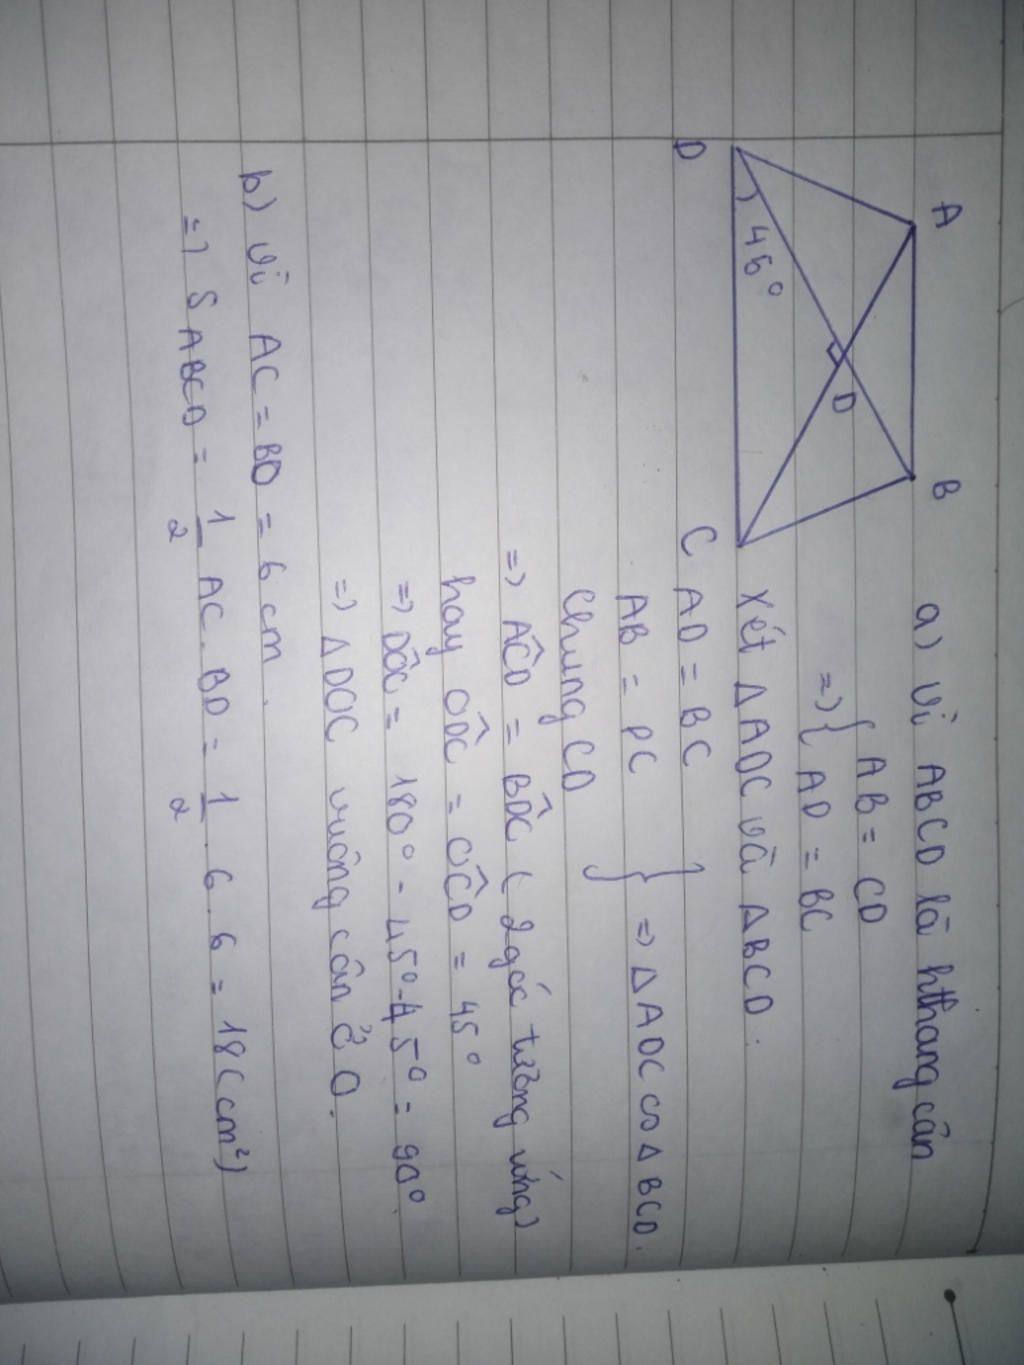 A B
45°
O
D C
a) Vì ABCD là hthang cân
=> { AB = CD
AD = BC
Xét ΔADC và ΔBCD.
AD = BC
AB = DC } => ΔADC ∽ ΔBCD.
Chung CD
=> AĈD = BD̂C ( 2 góc tương ứng)
hay OD̂C = OĈD = 45°
=> DÔC = 180° - 45° - 45° = 90°
=> ΔDOC vuông cân ở O.
b) Vì AC = BD = 6 cm.
=> S ABCD = 1/2 AC . BD = 1/2 . 6 . 6 = 18 ( cm²)